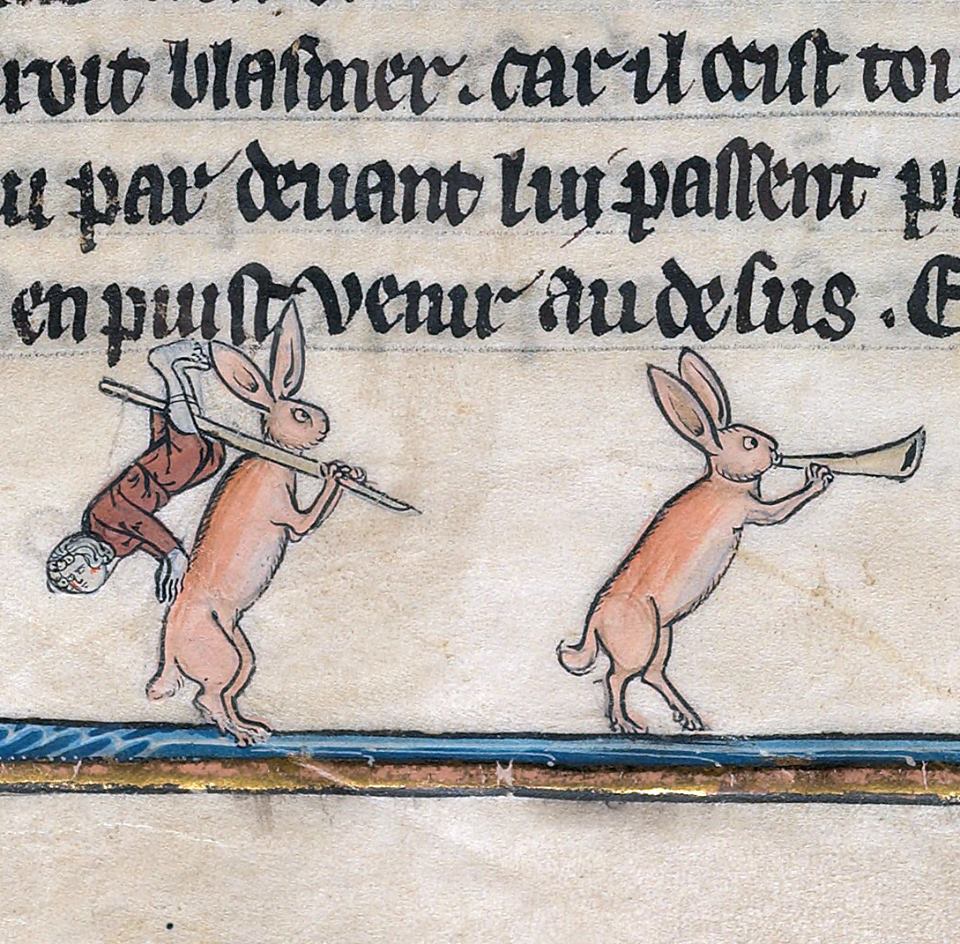 uroit blasmer. car il oeist tou
u par deuant luy passent p
en puist venir au desus. E